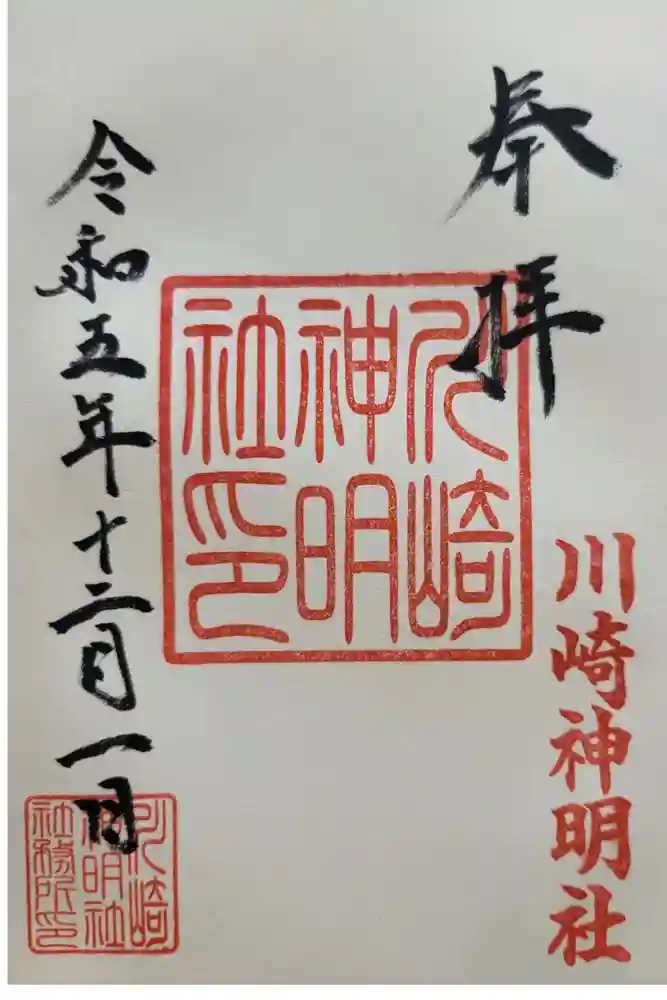 奉拝
川崎神明社
川崎
神明
社印
令和五年十二月一日
川崎
神明社
社務所印